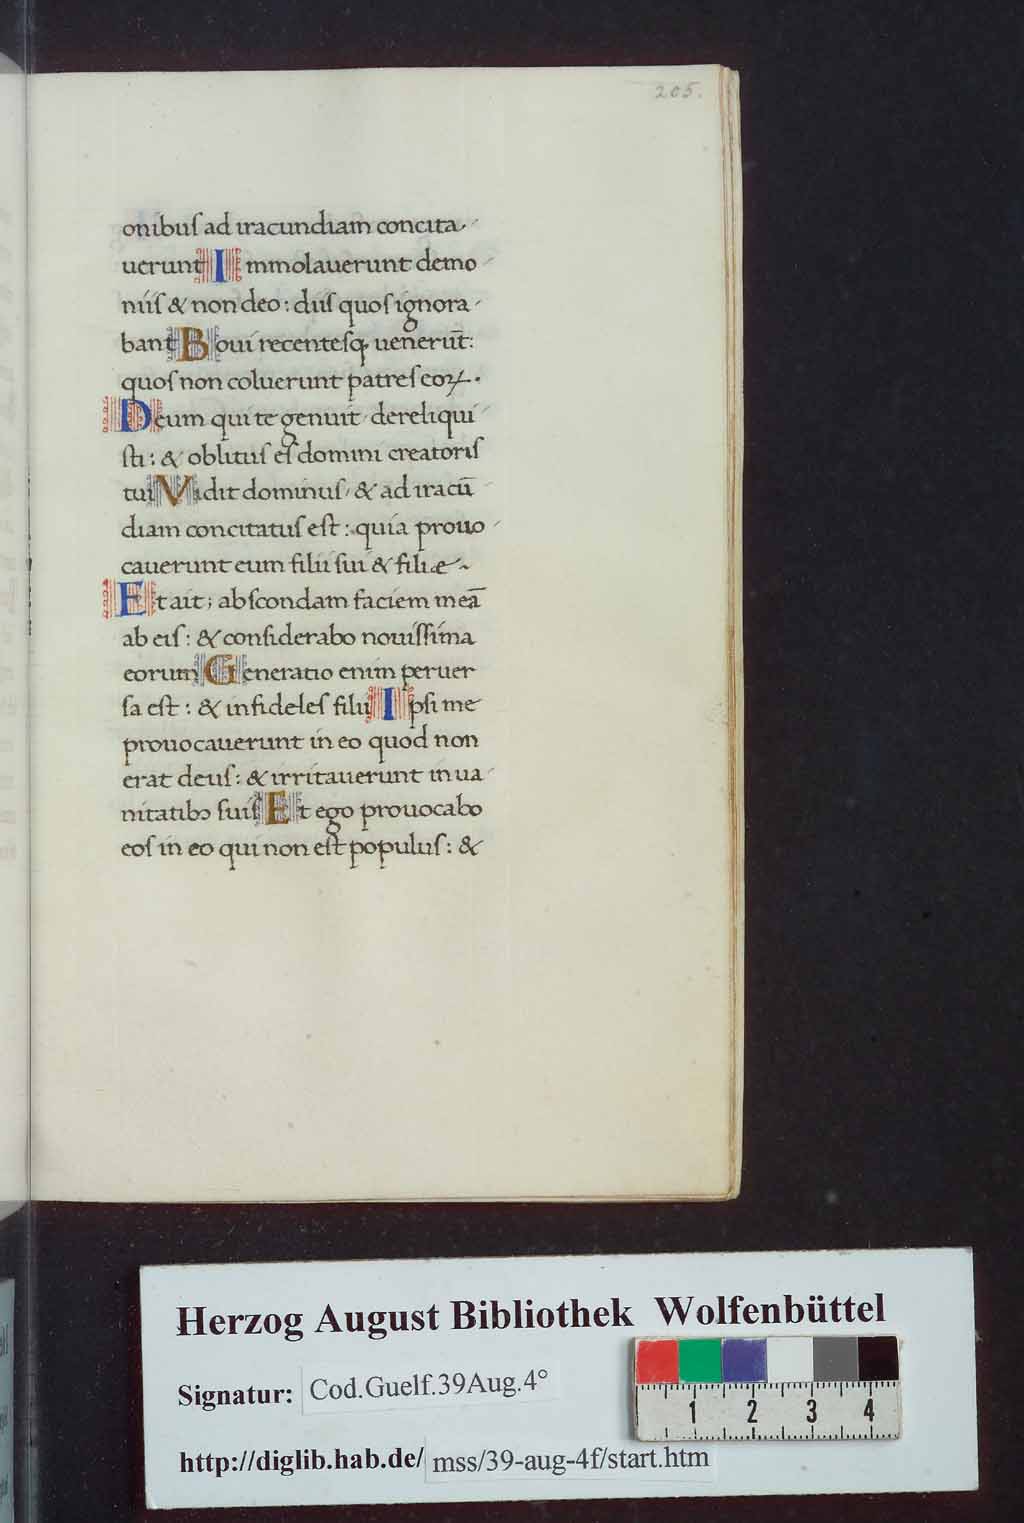 205.
onibuſ ad iracundiam concita-
uerunt Immolauerunt demo-
niiſ & non deo: diiſ quoſ ignora-
bant Boui recenteſqꝫ uenerūt:
quoſ non coluerunt patreſ eoꝝ.
Deum qui te genuit dereliqui-
ſti: & oblituſ eſ domini creatoriſ
tui Vidit dominuſ, & ad iracū
diam concitatuſ eſt: quia prouo-
cauerunt eum filii ſui & filiæ
Et ait; abſcondam faciem meā
ab eiſ: & conſiderabo nouiſſima
eorum Generatio enim peruer
ſa eſt: & infideleſ filii Ipſi me
prouocauerunt in eo quod non
erat deuſ: & irritauerunt in ua-
nitatibꝰ ſuiſ Et ego prouocabo
eoſ in eo qui non eſt populuſ: &
Herzog August Bibliothek Wolfenbüttel
Signatur: Cod.Guelf.39Aug.4°
1 2 3 4
http://diglib.hab.de/ mss/39-aug-4f/start.htm